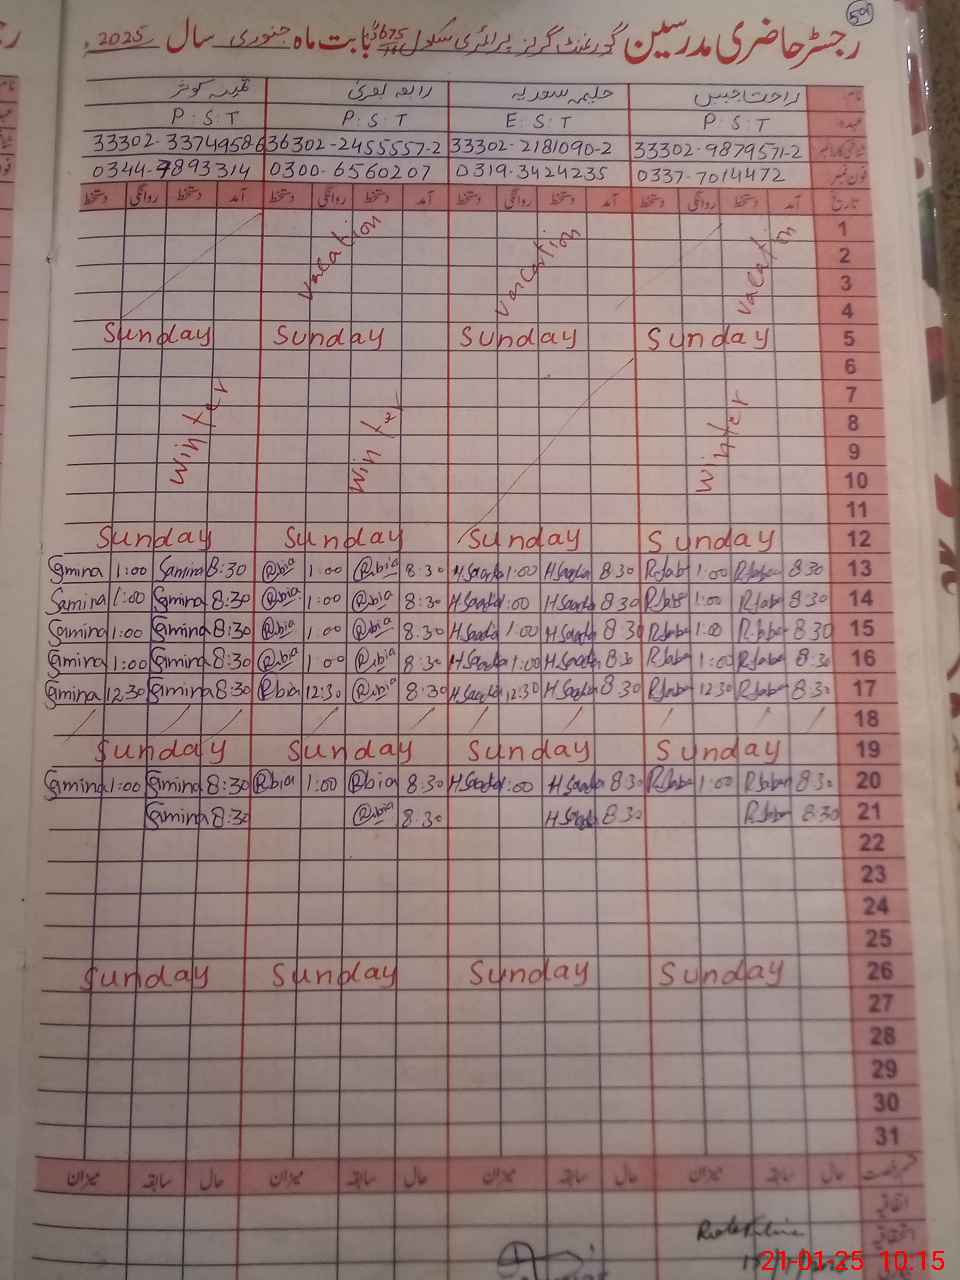 501
رجسٹر حاضری مدرسین گورنمنٹ گرلز پرائمری سکول 675 بابت ماہ جنوری سال 2025ء
نام راحت جبیں حلیمہ سعدیہ رابعہ بصری ثمینہ کوثر
عہدہ P.S.T E.S.T P.S.T P.S.T
33302-9879571-2 33302-2181090-2 36302-2455557-2 33302-33749586
فون نمبر 0337-7014472 0319-3424235 0300-6560207 0344-7893314
تاریخ آمد دستخط روانگی دستخط آمد دستخط روانگی دستخط آمد دستخط روانگی دستخط آمد دستخط روانگی دستخط
1
2 vacation varcation vacatin
3
4
Sunday Sunday Sunday Sunday 5
6
7
8 winter winter winter
9
10
11
Sunday Sunday Sunday Sunday 12
Samina 1:00 Samina 8:30 Rabia 1:00 Rabia 8:30 H Saadia 1:00 H Saadia 8:30 R.Jabe 1:00 R.Jabe 8:30 13
Samina 1:00 Samina 8:30 Rabia 1:00 Rabia 8:30 H Saadia 1:00 H Saadia 8:30 R.Jabe 1:00 R.Jabe 8:30 14
Samina 1:00 Samina 8:30 Rabia 1:00 Rabia 8:30 H Saadia 1:00 H Saadia 8:30 R.Jabe 1:00 R.Jabe 8:30 15
Samina 1:00 Samina 8:30 Rabia 1:00 Rabia 8:30 H Saadia 1:00 H Saadia 8:30 R.Jabe 1:00 R.Jabe 8:30 16
Samina 12:30 Samina 8:30 Rabia 12:30 Rabia 8:30 H Saadia 12:30 H Saadia 8:30 R.Jabe 12:30 R.Jabe 8:30 17
18
Sunday Sunday Sunday Sunday 19
Samina 1:00 Samina 8:30 Rabia 1:00 Rabia 8:30 H Saadia 1:00 H Saadia 8:30 R.Jabe 1:00 R.Jabe 8:30 20
Samina 8:30 Rabia 8:30 H Saadia 8:30 R.Jabe 8:30 21
22
23
24
25
Sunday Sunday Sunday Sunday 26
27
28
29
30
31
حال سابقہ میزان حال سابقہ میزان حال سابقہ میزان حال سابقہ میزان
21-01-25 10:15